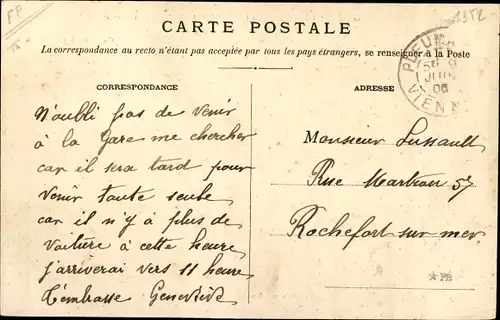 FF
1352
CARTE POSTALE
La correspondance au recto n'étant pas acceptée par tous les pays étrangers, se renseigner à la Poste
CORRESPONDANCE
N'oubli pas de venir
à la Gare me chercher
car il sera tard pour
venir toute seule
car il n'y à plus de
voiture à cette heure
j'arriverai vers 11 heure
t'embrasse Geneviève
ADRESSE
Monsieur Lussault
Rue Martrou 57
Rochefort sur mer
PLEUM
9
JUIN
06
VIENN
★ PB